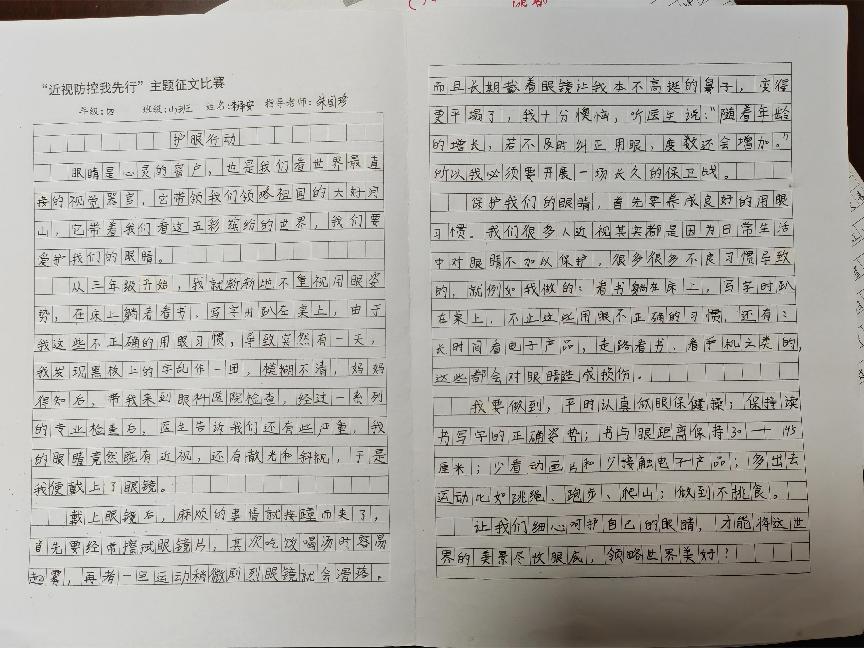 “近视防控我先行”主题征文比赛
年级:四 班级: 姓名: 指导老师:
护眼行动
眼睛是心灵的窗户,也是我们看世界最直
接的视觉器官,它带领我们领略祖国的大好河
山,它带着我们看这五彩缤纷的世界,我们要
爱护我们的眼睛。
从三年级开始,我就渐渐地不重视用眼姿
势,在床上躺着看书,写字时趴在桌上,由于
我这些不正确的用眼习惯,导致突然有一天,
我发现黑板上的字乱作一团,模糊不清,妈妈
得知后,带我来到眼科医院检查,经过一系列
的专业检查后,医生告诉我们还有些严重,我
的眼睛竟然既有近视,还有散光和斜视,于是
我便戴上了眼镜。
戴上眼镜后,麻烦的事情就接踵而来了,
首先要经常擦拭眼镜片,其次吃饭喝汤时容易
起雾,再者一旦运动稍微剧烈眼镜就会滑落。
而且长期戴着眼镜让我本不高挺的鼻子,变得
更平塌了,我十分懊恼,听医生说:“随着年龄
的增长,若不及时纠正用眼,度数还会增加。”
所以我必须要开展一场长久的保卫战。
保护我们的眼睛,首先要养成良好的用眼
习惯。我们很多人近视其实都是因为日常生活
中对眼睛不加以保护,很多很多不良习惯导致
的,就例如我做的:看书躺在床上,写字时趴
在桌上,不止这些用眼不正确的习惯,还有:
长时间看电子产品,走路看书、看手机之类的,
这些都会对眼睛造成损伤。
我要做到,平时认真做眼保健操;保持读
书写字的正确姿势;书与眼距离保持30—45
厘米;少看动画片和少接触电子产品;多出去
运动比如跳绳、跑步、爬山;做到不挑食。
让我们细心呵护自己的眼睛,才能将这世
界的美景尽收眼底,领略世界美好!